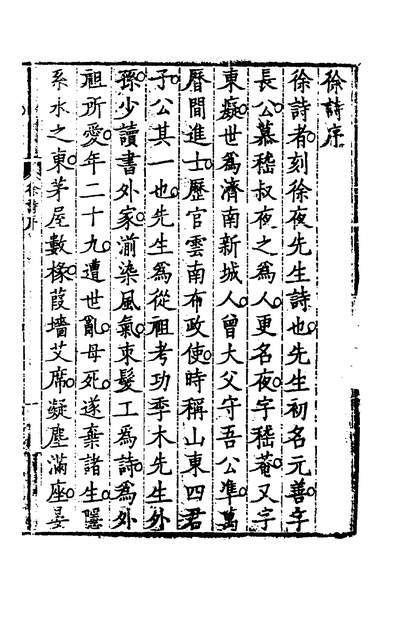 徐詩序
徐詩者刻徐夜先生詩也先生初名元善字
長公慕嵇叔夜之為人更名夜字嵇菴又字
東癡世為濟南新城人曾大父守吾公準萬
曆間進士歷官雲南布政使時稱山東四君
子公其一也先生為從祖考功季木先生外
孫少讀書外家湔染風氣束髮工為詩為外
祖所愛年二十九遭世亂母死遂棄諸生隱
系水之東茅屋數椽葭墻艾席凝塵滿座晏
徐詩序
一